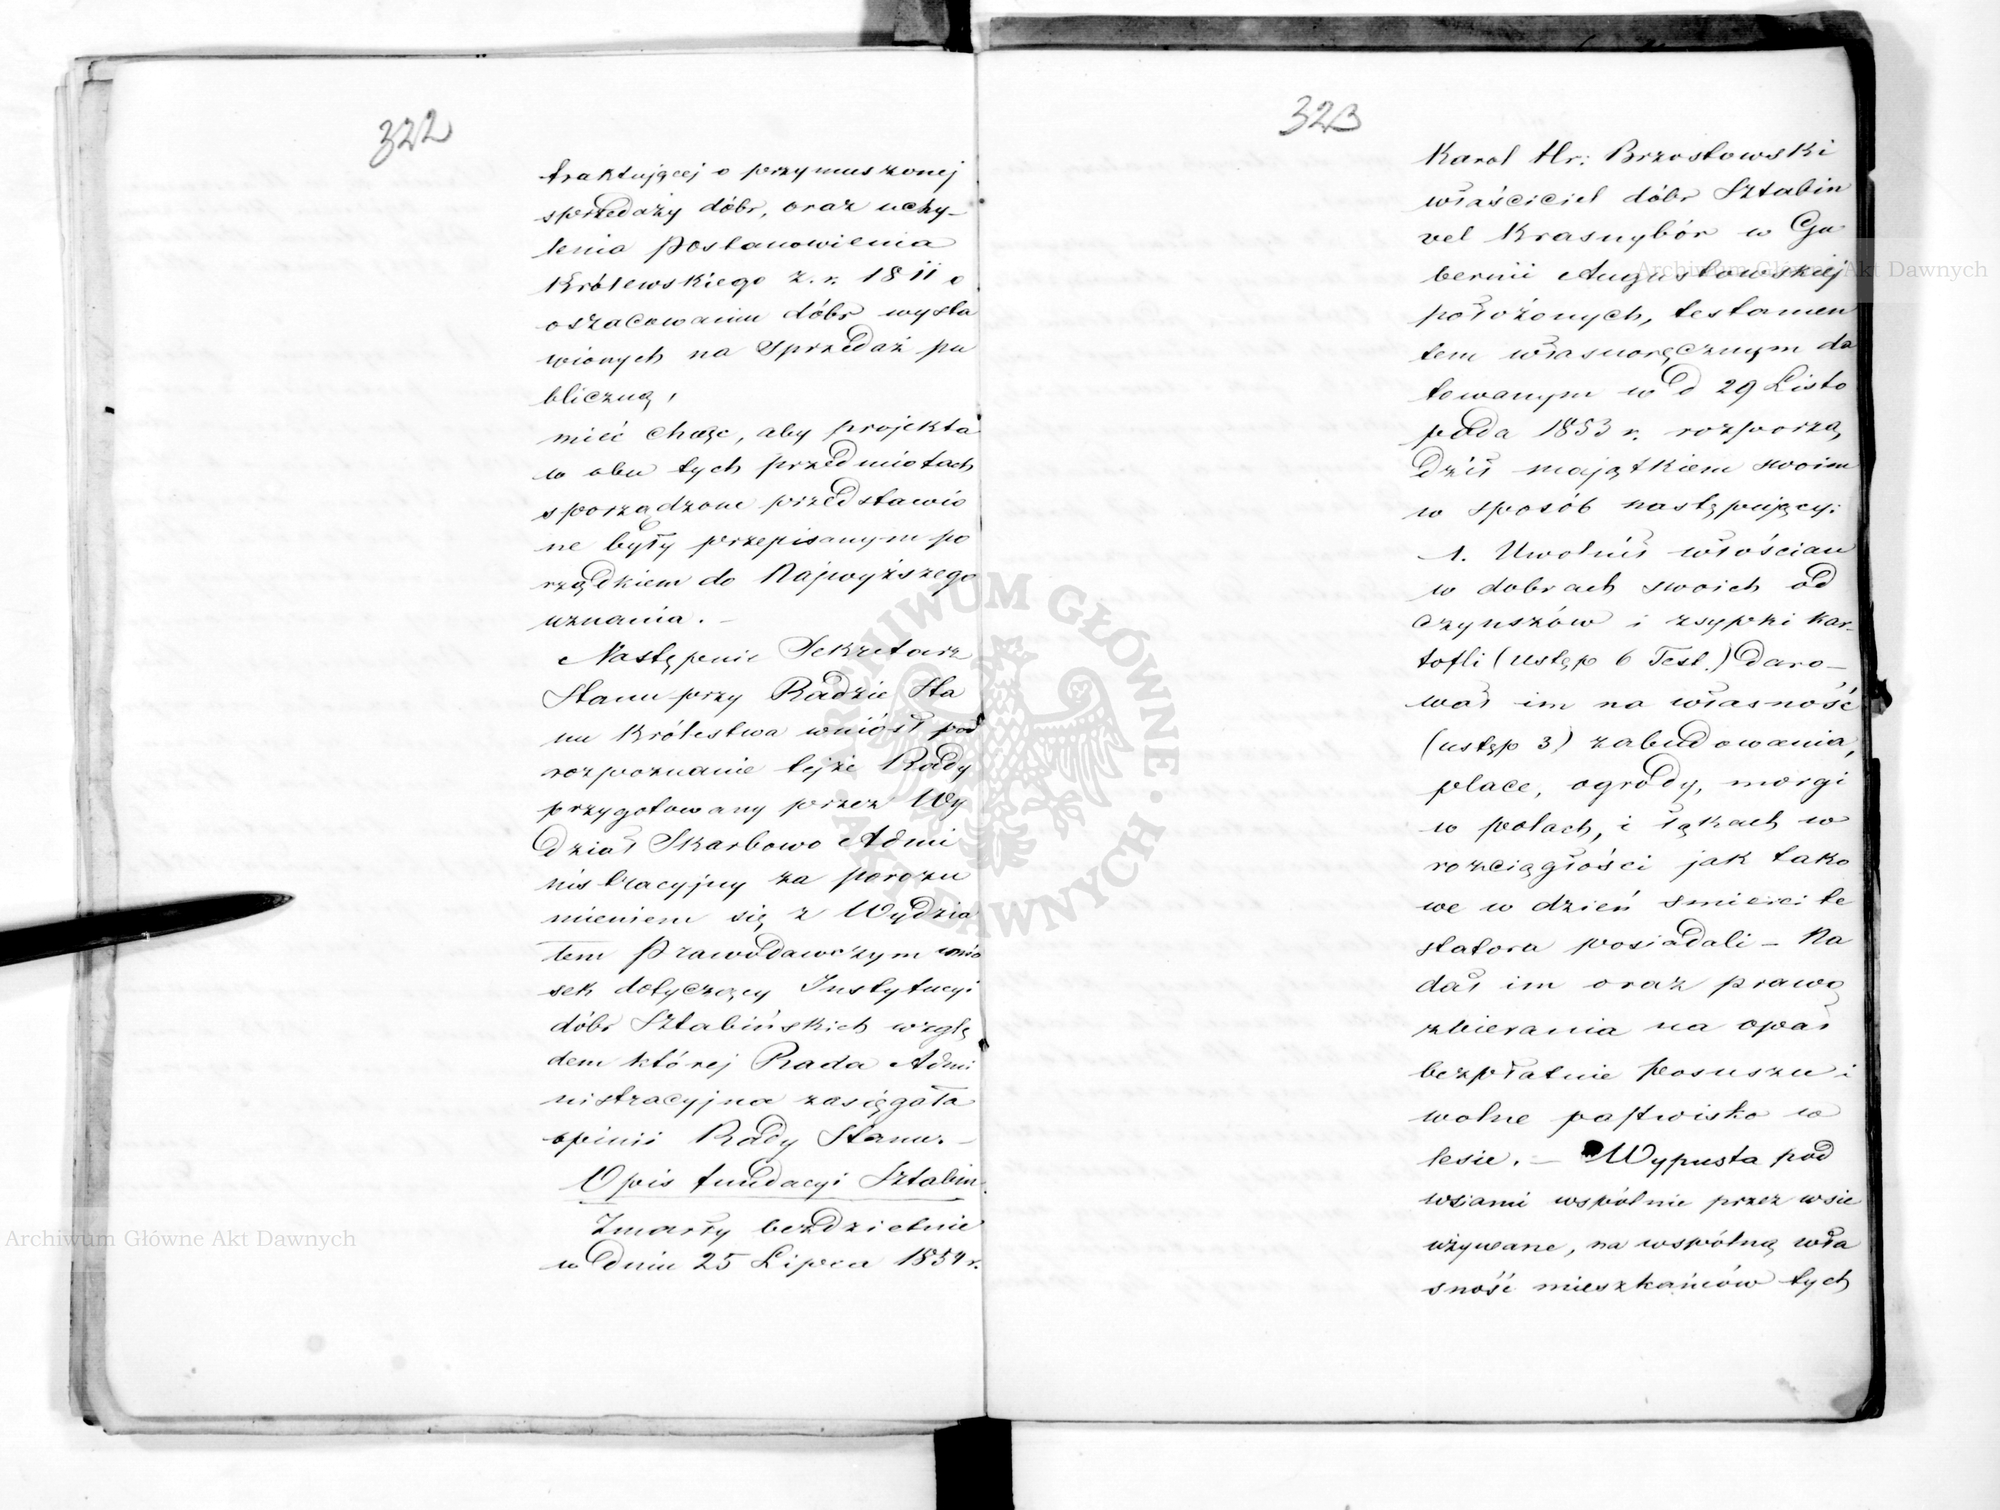 322
traktującej o przymuszonej
sprzedaży dóbr, oraz uchy-
lenia Postanowienia
Królewskiego z. r. 1811 o
oszacowaniu dóbr wysta
wionych na sprzedaż pu
bliczną,
mieć chcąc, aby projekta
w obu tych przedmiotach
sporządzone przedstawio
ne były przepisanym po
rządkiem do Najwyższego
uznania. -
Następnie Sekretarz
Stanu przy Radzie Sta
nu Królestwa wniósł pod
rozpoznanie tejże Rady
przygotowany przez Wy
dział Skarbowo Admi
nistracyjny za porozu
mieniem się z Wydzia
łem Prawodawczym wnio
sek dotyczący Instytucyi
dóbr Sztabińskich wzglę
dem której Rada Admi
nistracyjna zasięgała
opinii Rady Stanu. -
Opis fundacyi Sztabin.
Zmarły bezdzietnie
w dniu 25 Lipca 1854 r.
323
Karol Hr: Brzostowski
właściciel dóbr Sztabin
vel Krasnybór w Gu
bernii Augustowskiej
położonych, testamen
tem własnoręcznym da
towanym w d 29 Listo
pada 1853 r. rozporzą
dził majątkiem swoim
w sposób następujący:
1. Uwolnił włościan
w dobrach swoich od
czynszów i zsypki kar-
tofli (ustęp 6 Test.) daro-
wał im na własność
(ustęp 3) zabudowania,
place, ogrody, morgi
w polach, i łąkach w
rozciągłości jak tako
we w dzień smierci te
statora posiadali - Na
dał im oraz prawo
zbierania na opał
bezpłatnie posuszu i
wolne pastwisko w
lesie. - Wypusta pod
wsiami wspólnie przez wsie
używane, na wspólną wła
sność mieszkańców tych
Archiwum Główne Akt Dawnych
Archiwum Główne Akt Dawnych
ARCHIWUM GŁÓWNE · AKT DAWNYCH ·